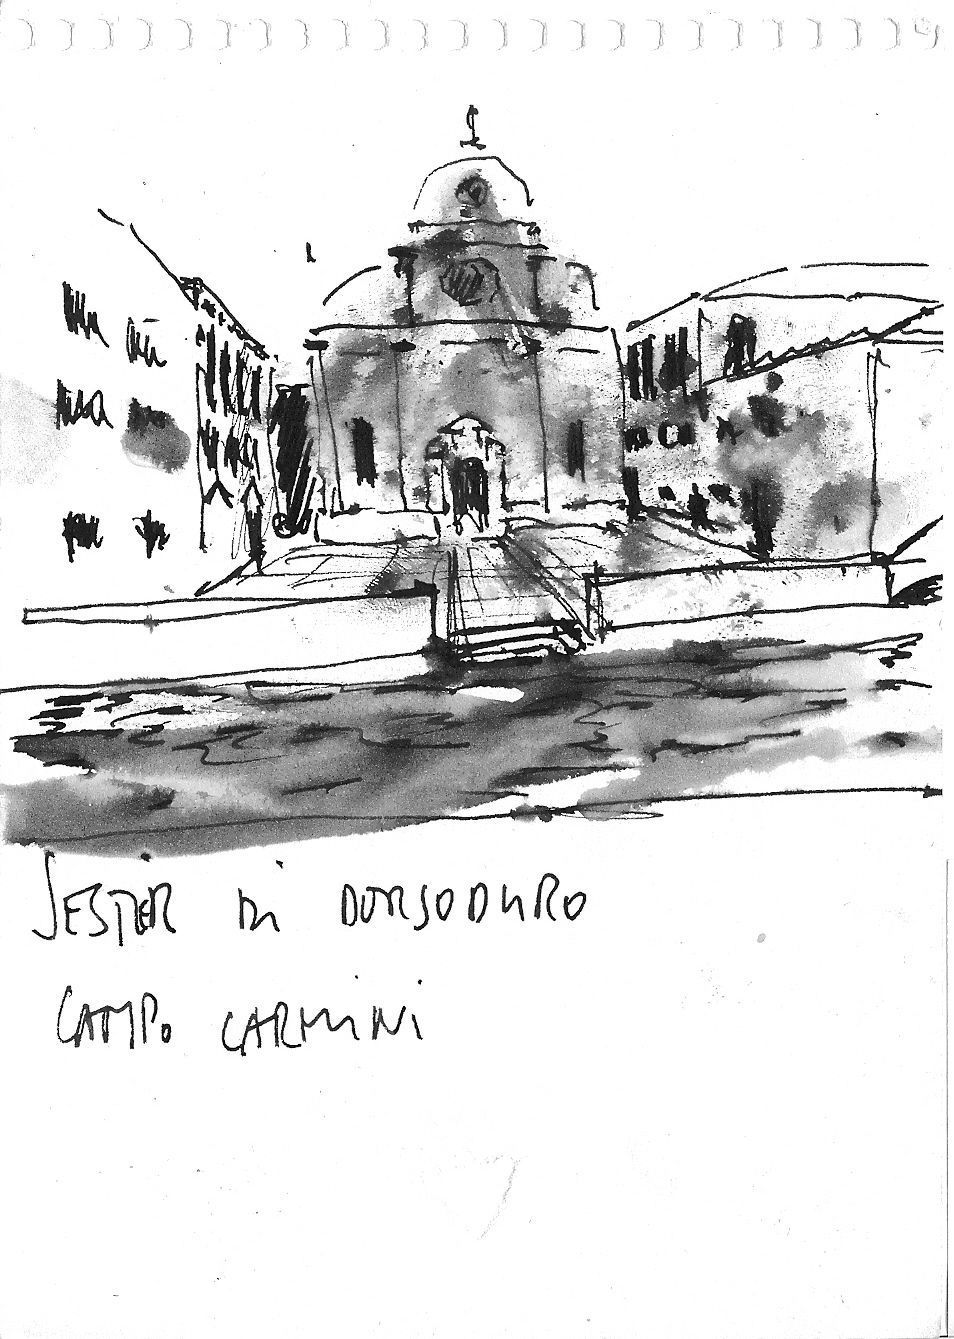 SESTIER DI DORSODURO
CAMPO CARMINI